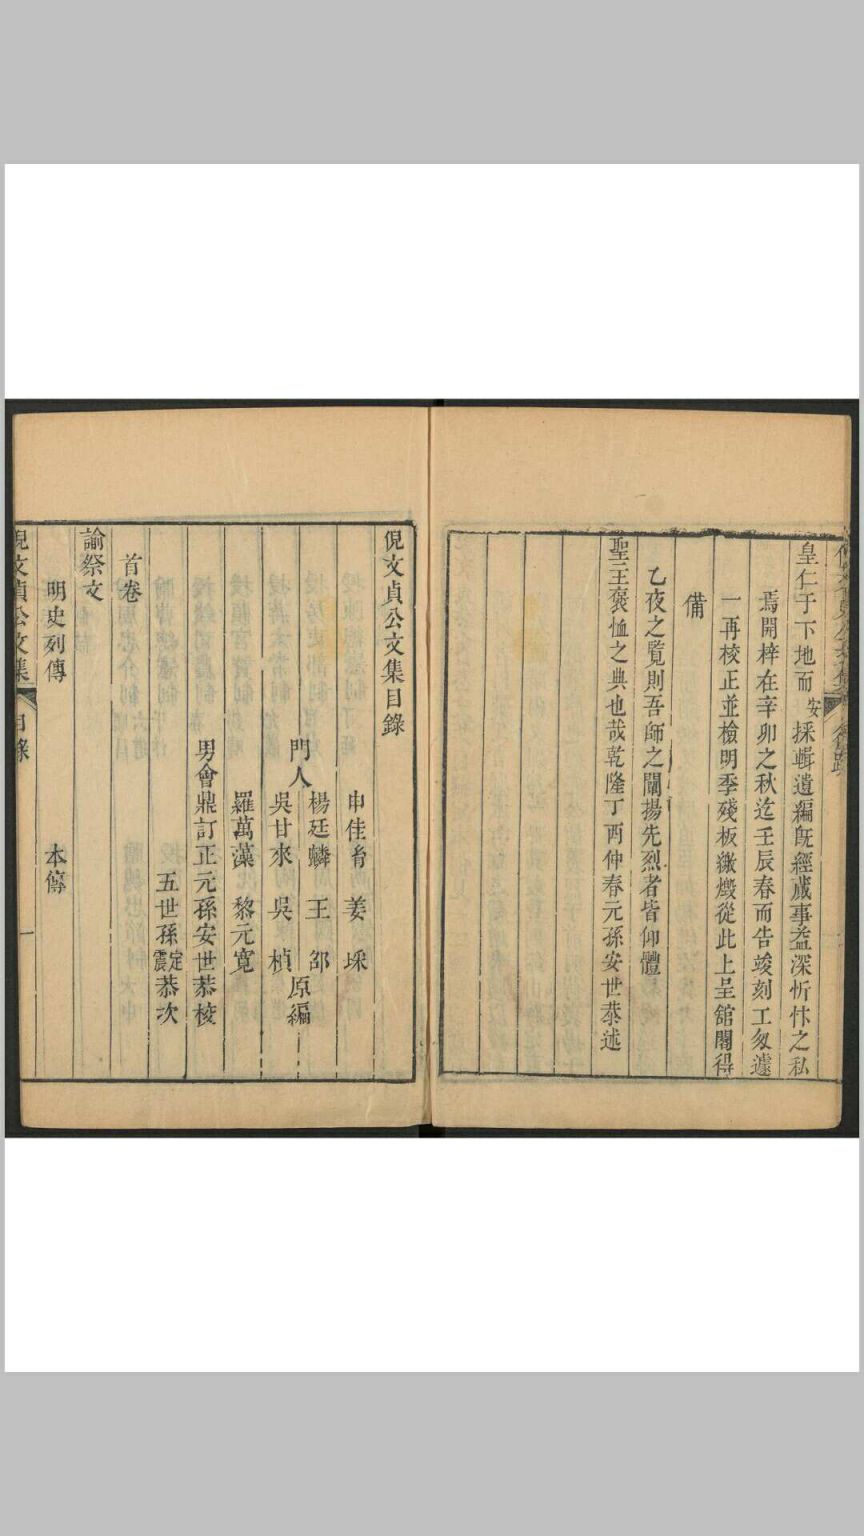 皇仁于下地而安採輯遺編旣經蕆事葢深忻忭之私
焉開梓在辛卯之秋迄壬辰春而告竣刻工匆遽
一再校正並檢明季殘板繳燬從此上呈舘閣得
備
乙夜之覽則吾師之闡揚先烈者皆仰體
聖主褒恤之典也哉乾隆丁酉仲春元孫安世恭述
倪文貞公文集目錄
門人
申佳胤 姜埰
楊廷麟 王邵
吳甘來 吳楨
羅萬藻 黎元寬
原編
男會鼎訂正元孫安世恭校
五世孫定震恭次
首卷
諭祭文
明史列傳 本傳
倪文貞公文集 目錄 一